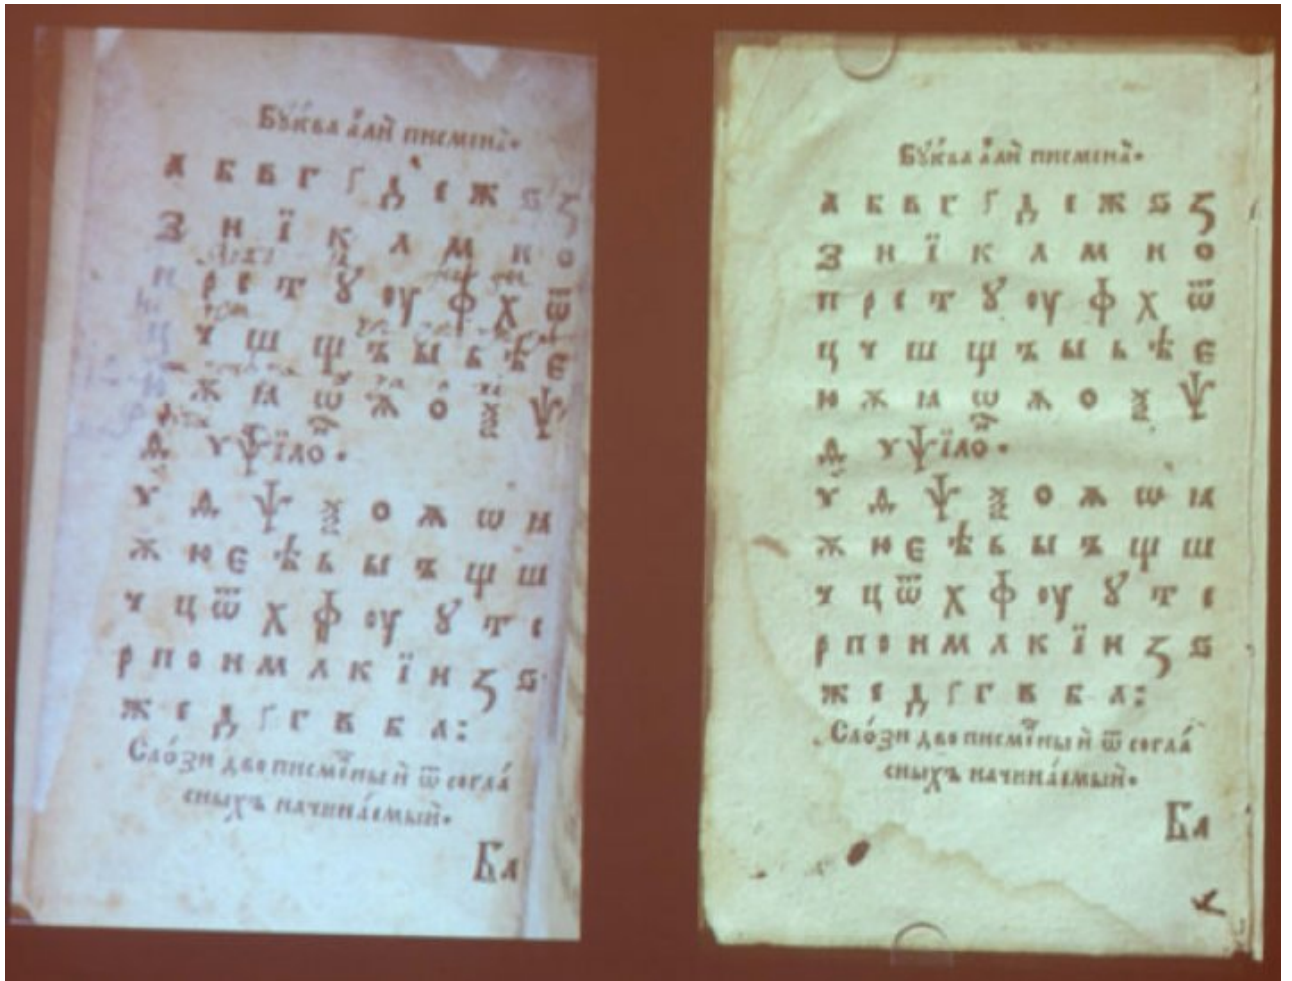 Бꙋ́ква а҆́лѝ писмена̀.
а б в г ґ д є ж ѕ ꙁ
З и ї к л м н о
п р с т ꙋ оу ф х ѿ
ц ч ш щ ъ ы ь ѣ є
ю ѫ ѧ ѡ ѫ о ѯ ѱ
ѧ ѵ ѱїло̀.
ѵ ѧ ѱ ѯ о ѫ ѡ ѧ
ѫ ю є ѣ ь ы ъ щ ш
ч ц ѿ х ф оу ꙋ т с
р п о н м л к ї и ꙁ ѕ
ж є д ґ г в б а:
Сло́зи два писме́ны й ѿ согла́
сныхъ начина́емый.
Ба
Бꙋ́ква а҆́лѝ писмена̀.
а б в г ґ д є ж ѕ ꙁ
З и ї к л м н о
п р с т ꙋ оу ф х ѿ
ц ч ш щ ъ ы ь ѣ є
ю ѫ ѧ ѡ ѫ о ѯ ѱ
ѧ ѵ ѱїло̀.
ѵ ѧ ѱ ѯ о ѫ ѡ ѧ
ѫ ю є ѣ ь ы ъ щ ш
ч ц ѿ х ф оу ꙋ т с
р п о н м л к ї и ꙁ ѕ
ж є д ґ г в б а:
Сло́зи два писме́ны й ѿ согла́
сныхъ начина́емый.
Ба